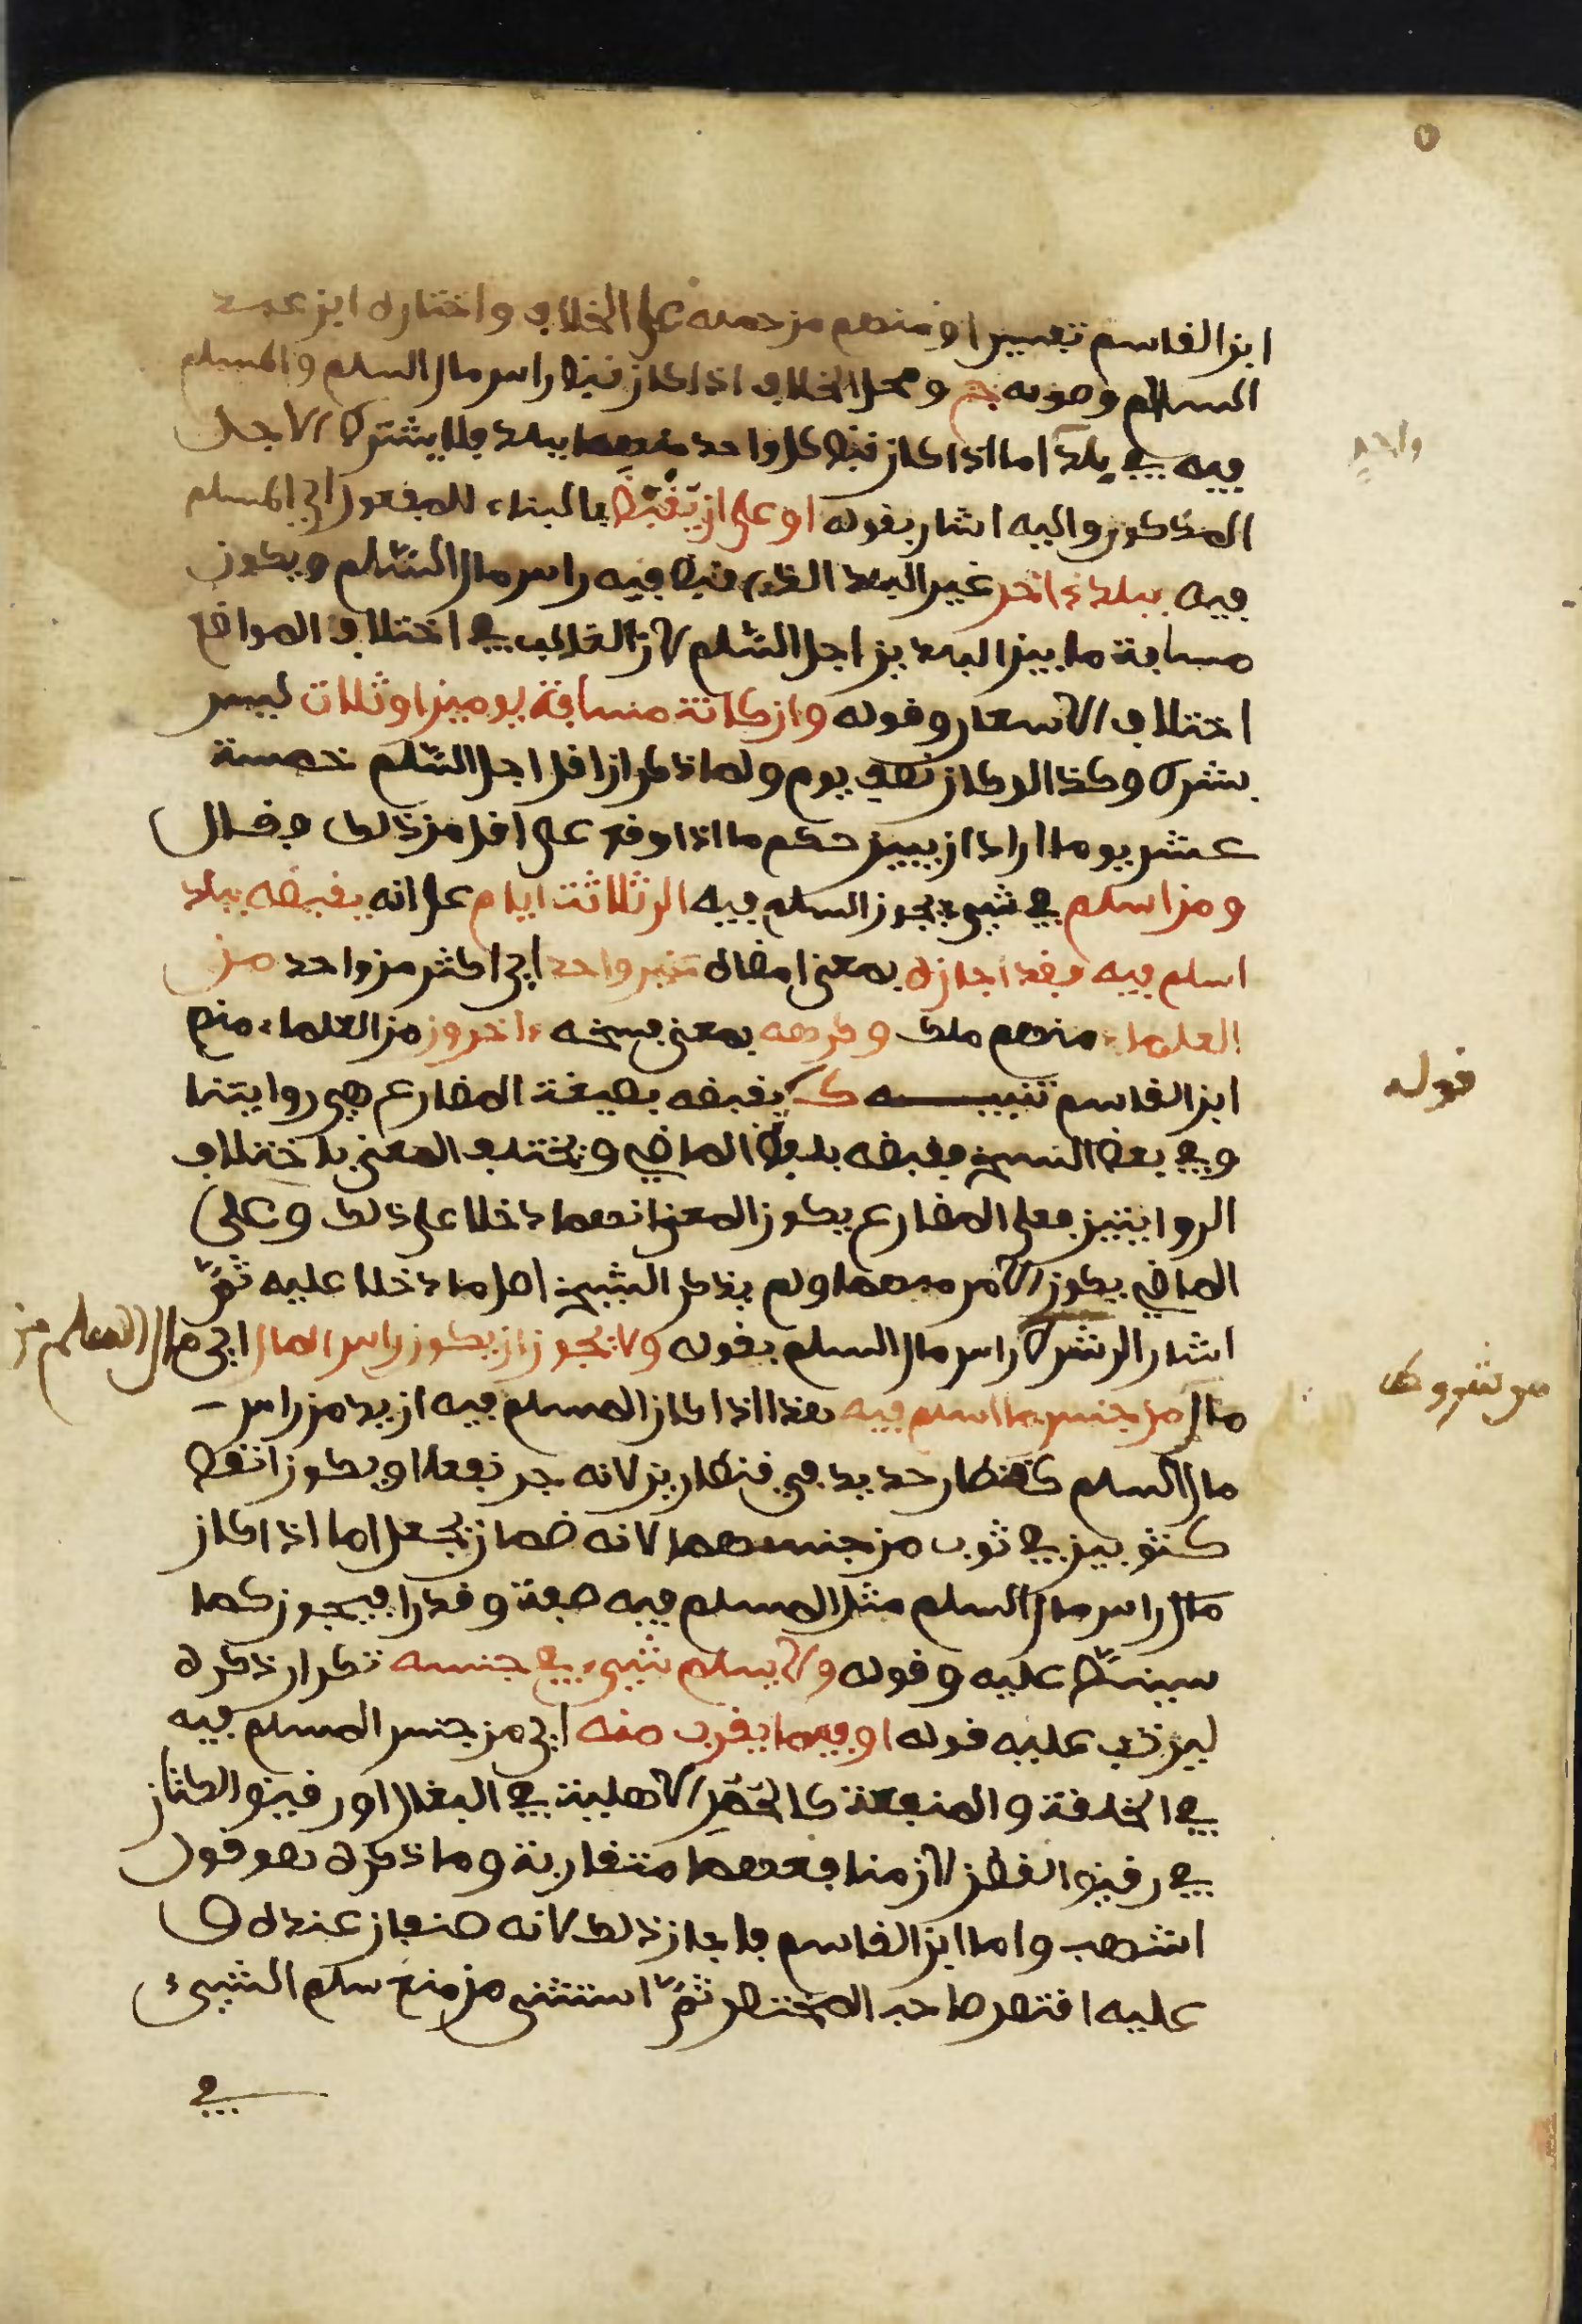 ابن القاسم تفسيرا ومنهم من حمله على الخلاف واختاره ابن عبد
السلام وصوبه ج ومحل الخلاف اذا كان قبض راس مال السلم والمسلم
فيه في بلد اما اذا كان قبض كل واحد منهما ببلد فلا يشترط الاجل
واحد
المذكور واليه اشار بقوله او على ان يقبض بالبناء للمفعول اي المسلم
فيه ببلد ءاخر غير البلد الذي قبض فيه راس مال السلم ويكون
مسافة ما بين البلدين اجل السلم لان الغالب في اختلاف المواضع
اختلاف الاسعار وقوله وان كانت مسافة يومين او ثلاث ليس
بشرط وكذا لو كان نصف يوم ولما ذكر ان اقل اجل السلم خمسة
عشر يوما اراد ان يبين حكم ما اذا وقع على اقل من ذلك فقال
ومن اسلم في شيء يجوز السلم فيه الى ثلاثة ايام على انه يقبضه ببلد
اسلم فيه فقد اجازه بمعنى امضاه غير واحد اي اكثر من واحد من
العلماء منهم ملك وكرهه بمعنى فسخه ءاخرون من العلماء منهم
ابن القاسم تنبيه ك يقبضه بصيغة المضارع هي روايتنا
قوله
وفي بعض النسخ فقبضه بلفظ الماضي ويختلف المعنى باختلاف
الروايتين فعلى المضارع يكون المعنى انهما دخلا على ذلك وعلى
الماضي يكون الامر مبهما ولم يذكر الشيخ اصل ما دخلا عليه ثم
اشار الى شرط راس مال السلم بقوله ولا يجوز ان يكون راس المال اي مال السلم من
من شروط
مال من جنس ما اسلم فيه هذا اذا كان المسلم فيه ازيد من راس
مال السلم كقنطار حديد في قنطارين لانه جر نفعا او يكون انقص
كثوبين في ثوب من جنسهما لانه ضمان بجعل اما اذا كان
مال راس مال السلم مثل المسلم فيه صفة وقدرا فيجوز كما
سينص عليه وقوله ولا يسلم شيء في جنسه تكرار ذكره
ليرتب عليه قوله او فيما يقرب منه اي من جنس المسلم فيه
في الخلقة والمنفعة كالحمر الاهلية في البغال او رقيق الكتان
في رقيق القطن لان منافعهما متقاربة وما ذكره هو قول
اشهب واما ابن القاسم فاجاز ذلك لانه صنفان عنده
عليه اقتصر صاحب المختصر ثم استثنى من منع سلم الشيء
في